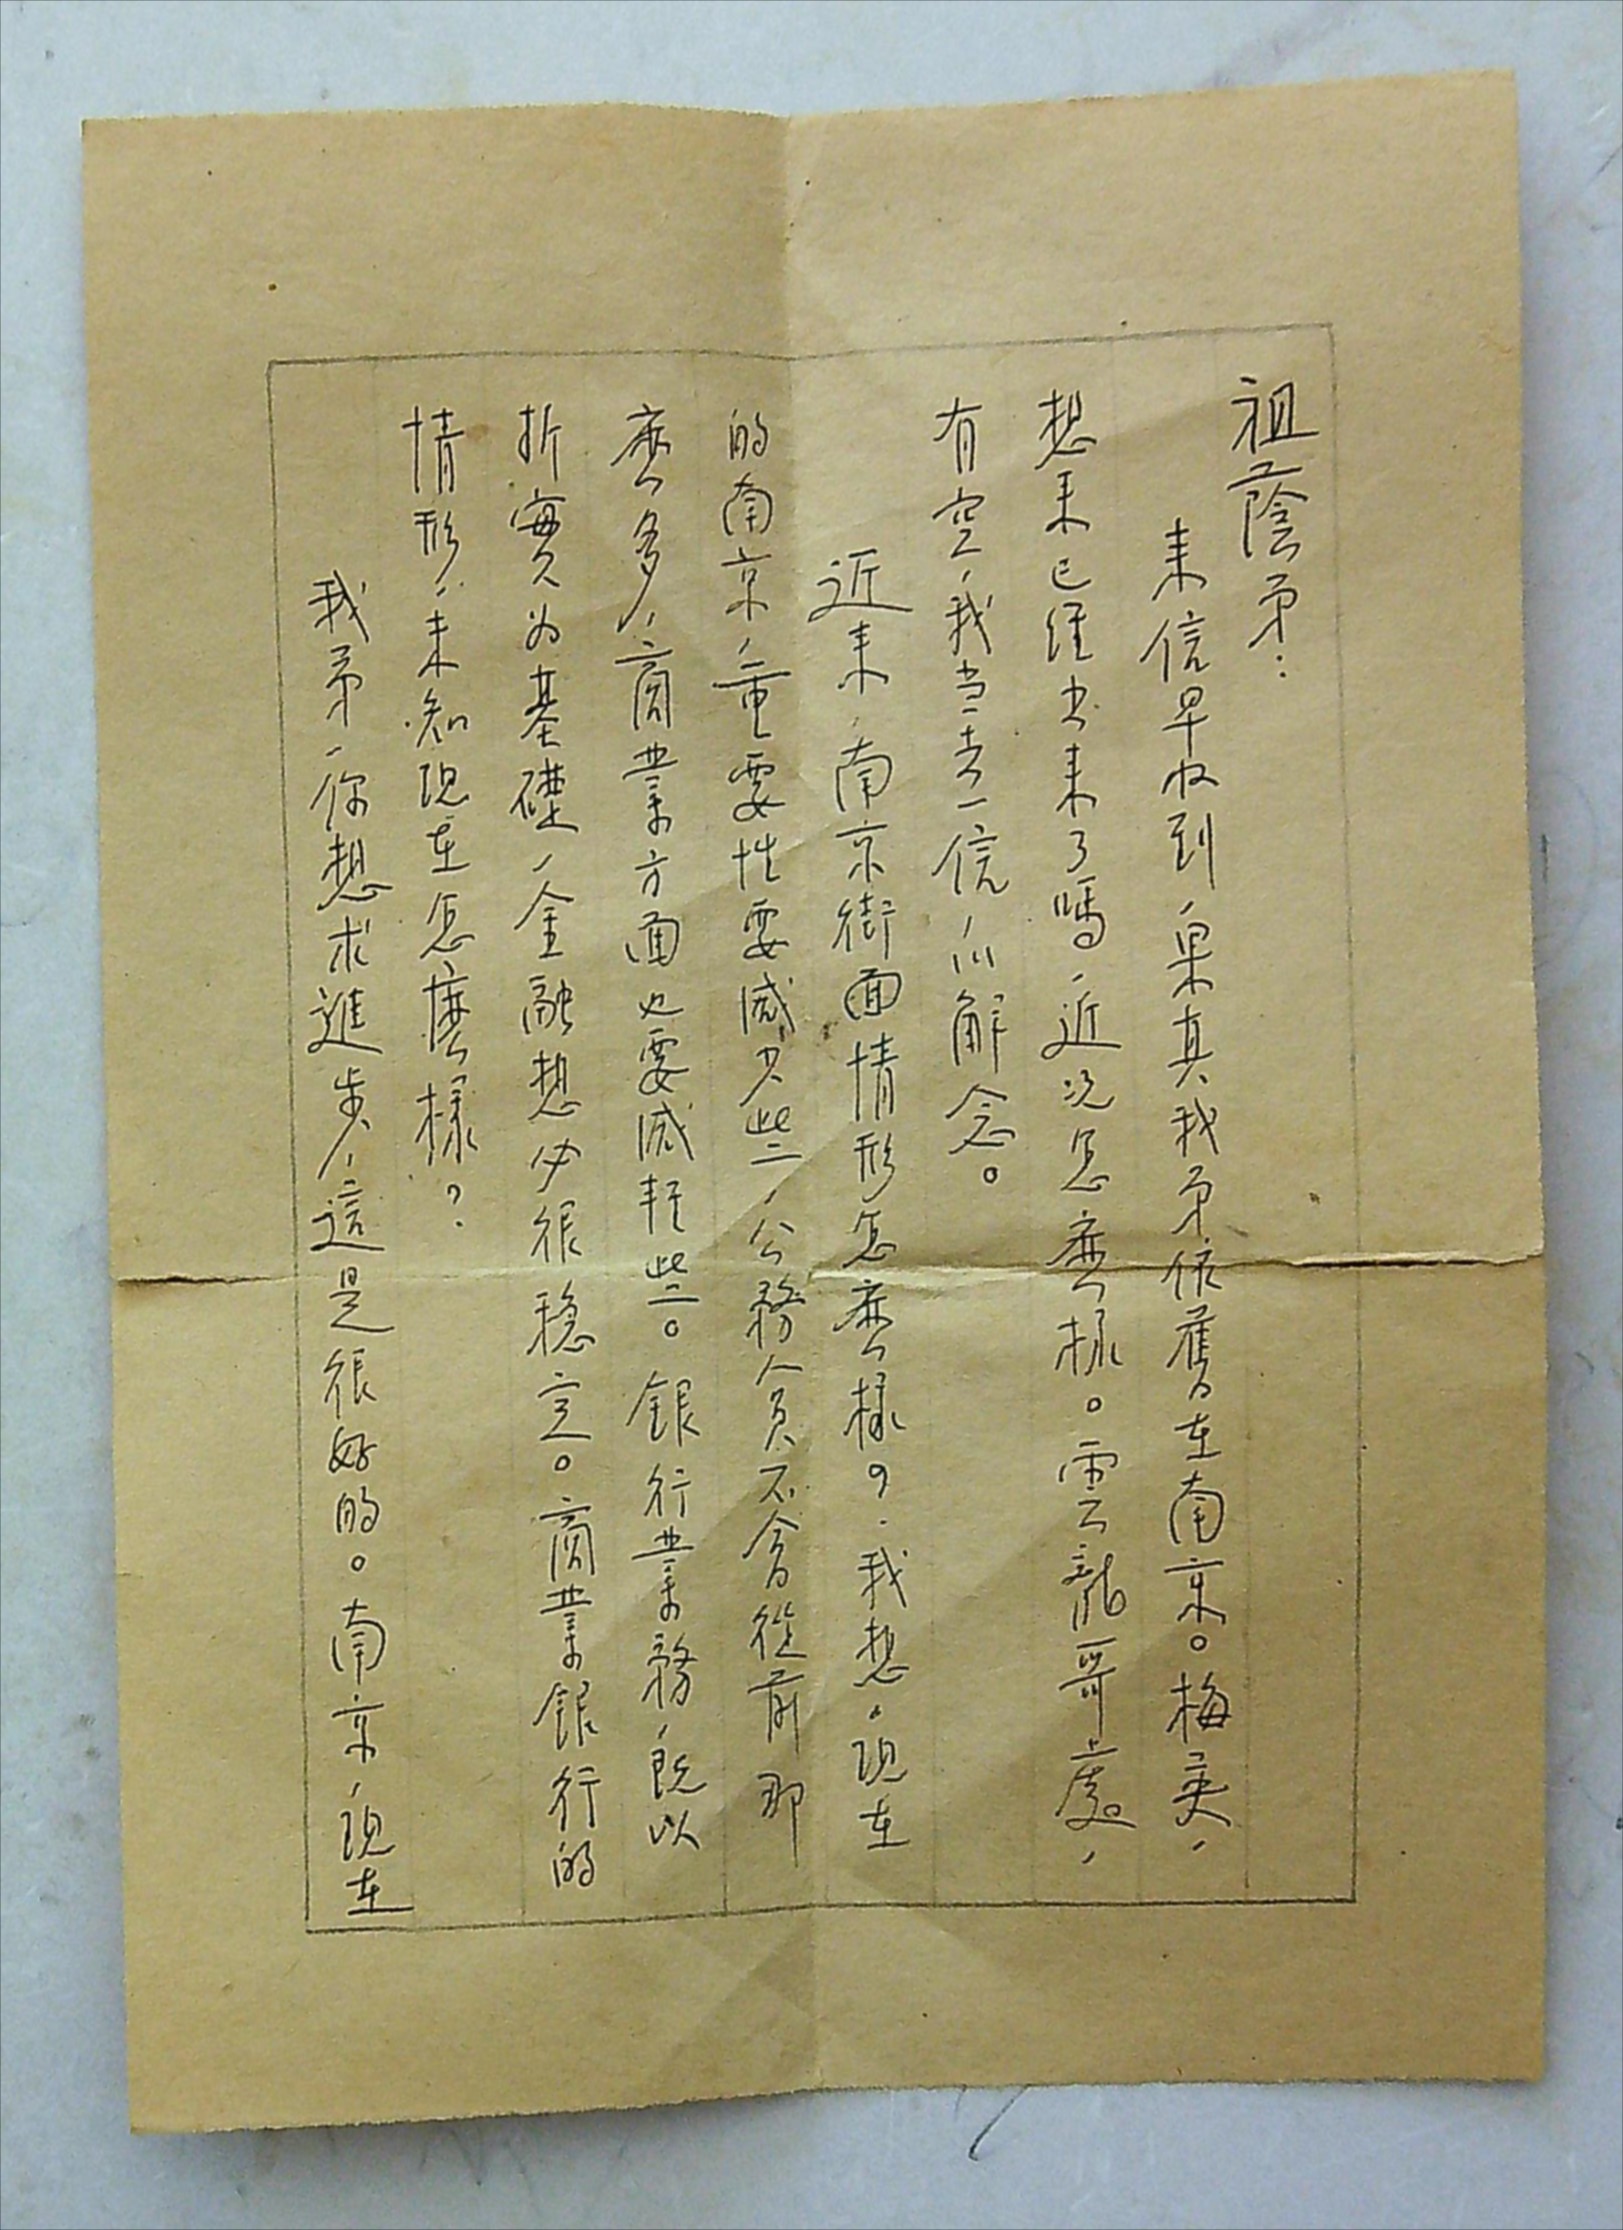 祖蔭弟：
來信早收到，果真我弟依舊在南京。梅英，
想来已經出来了嗎，近况怎麽樣。雲龍哥處，
有空，我当去一信，以解念。
近来，南京街面情形怎麽樣？我想，現在
的南京，重要性要减少些，公務人員不會從前那
麽多，商業方面也要减輕些。銀行業務，既以
折實为基礎，金融想必很稳定。商業銀行的
情形，未知現在怎麽樣？
我弟，你想求進步，這是很好的。南京，現在